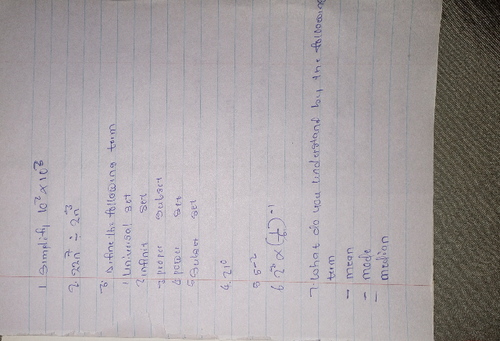 1. Simplify 10² × 10³
2. 22n⁷ ÷ 2n³
3. Define the following term
1, Universal set
2, infinit set
3 proper subset
4 power set
5 Subset set
4. 21⁰
5 5⁻²
6 2 × ()⁻¹
7. What do you understand by the following
term
- mean
- mode
- median